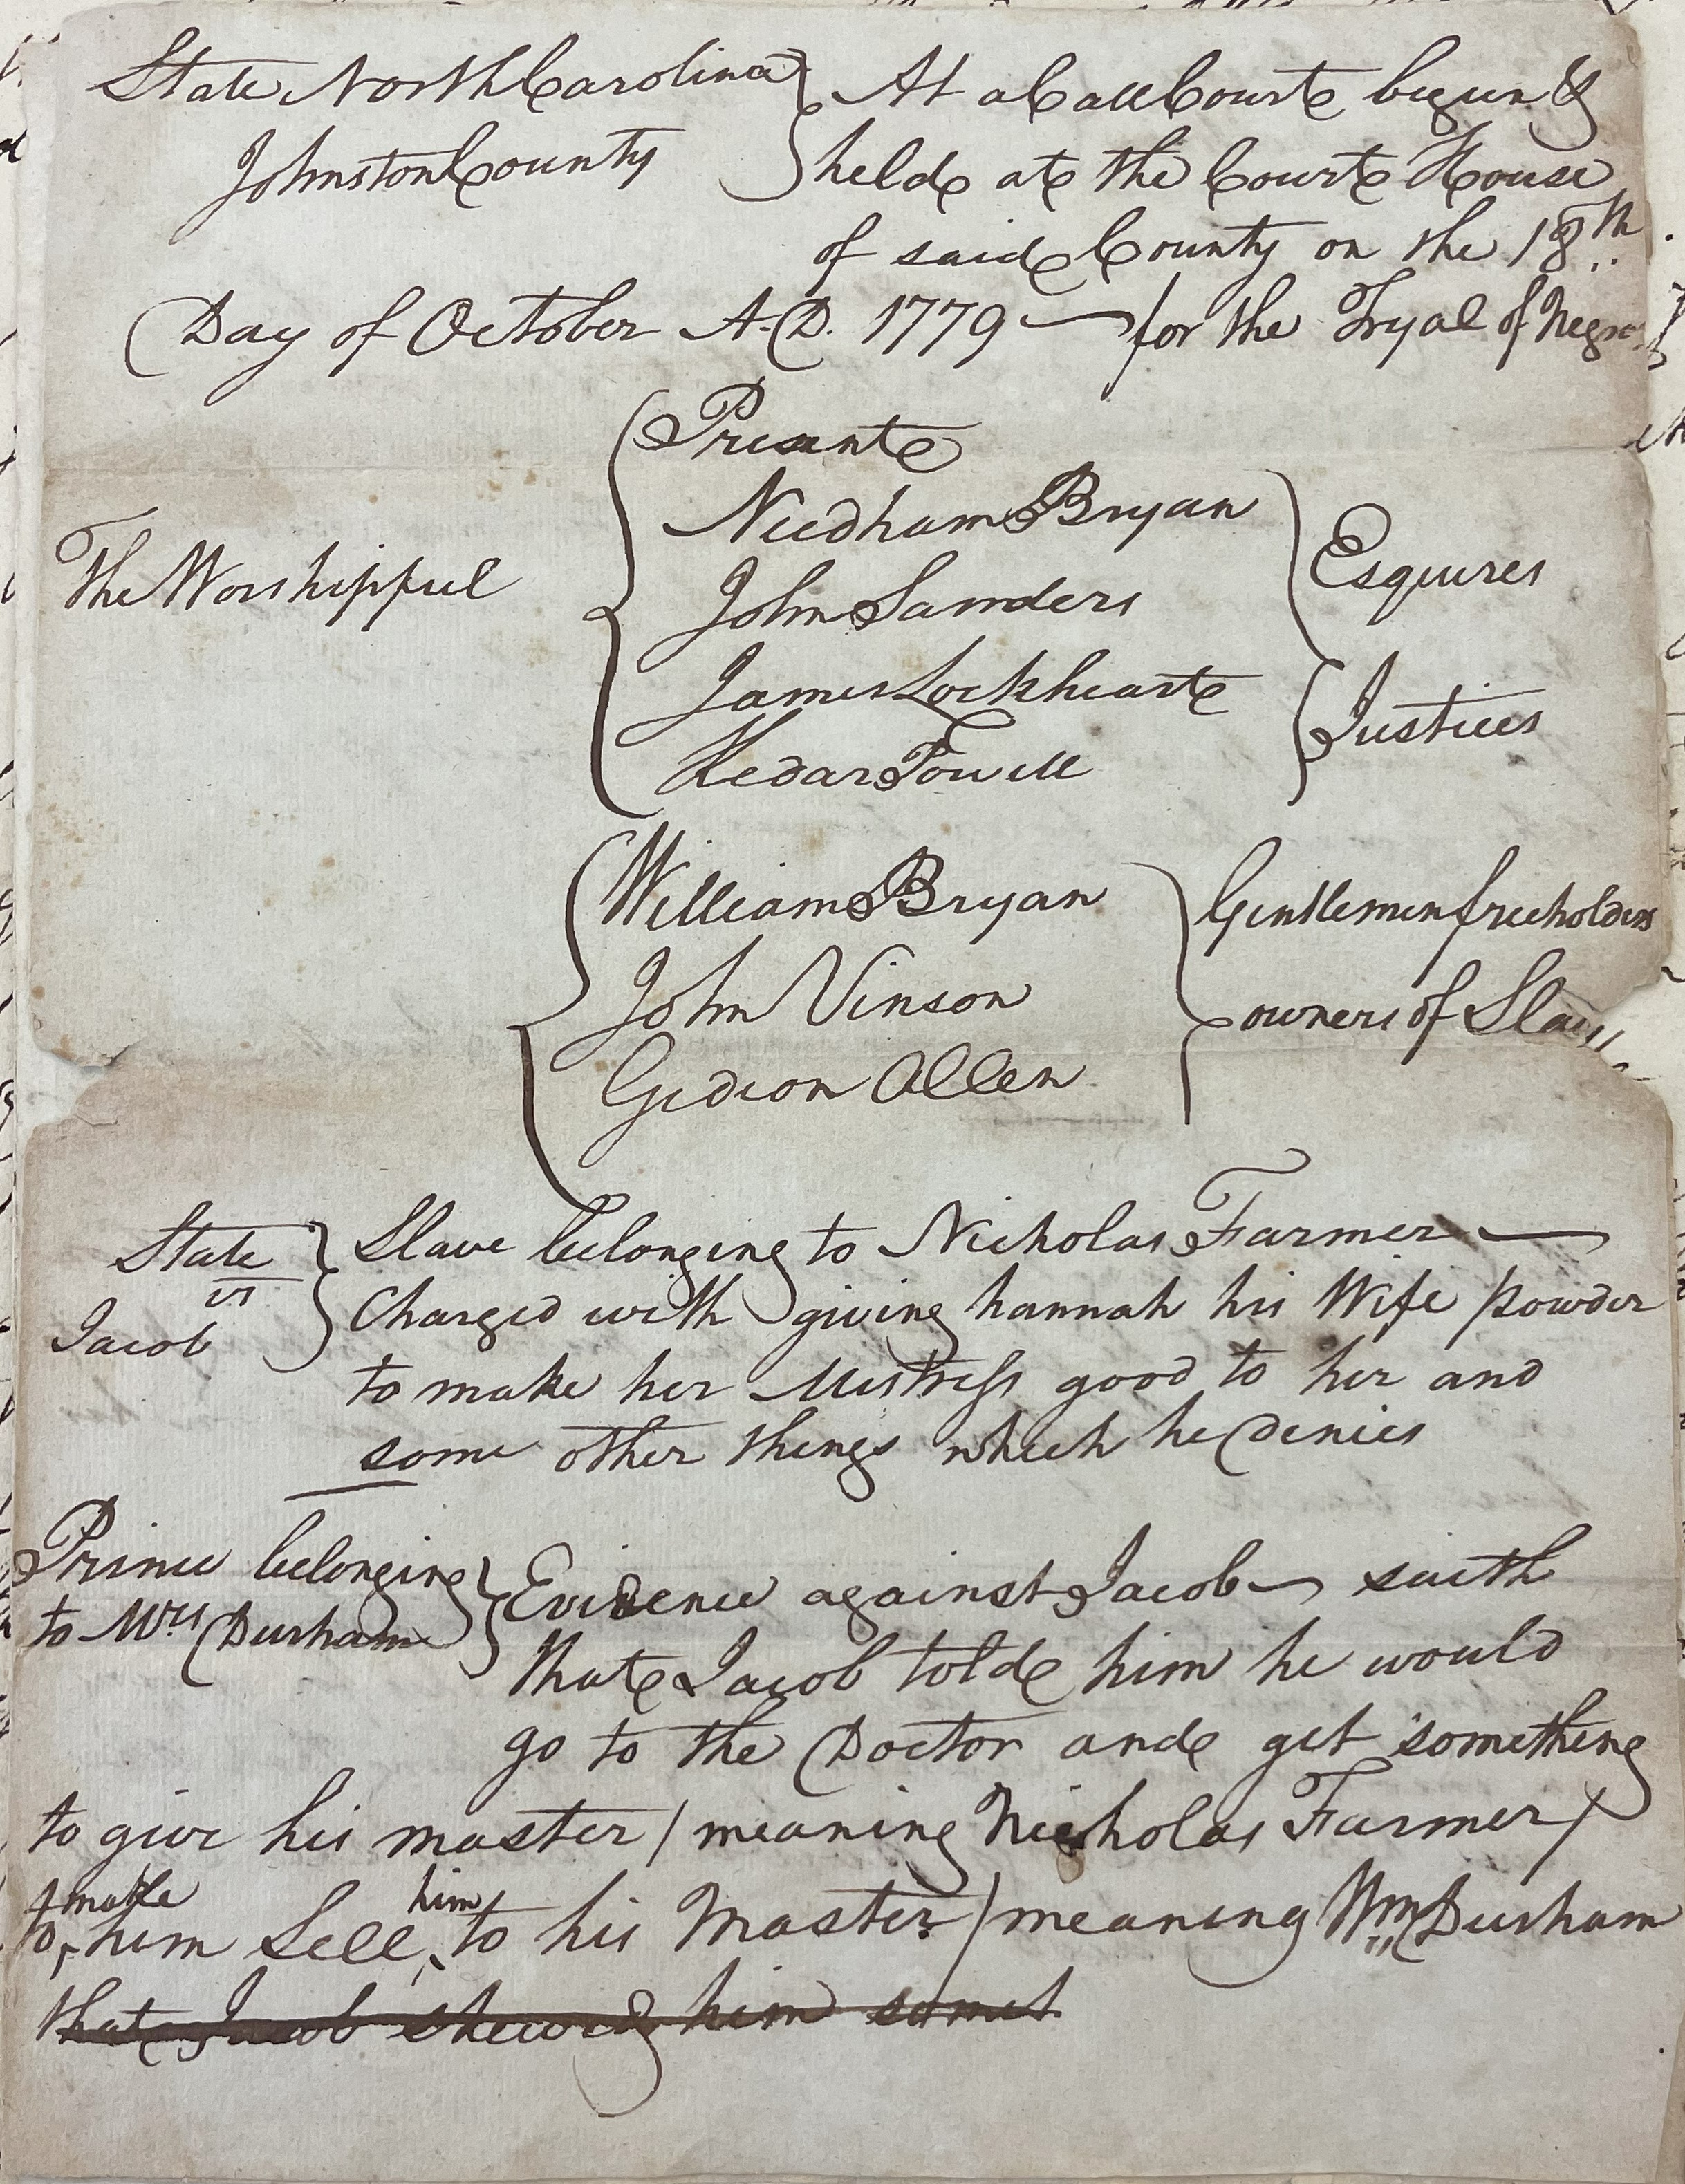 State North Carolina } At a Call Court begun &
Johnston County } held at the Court House
of said County on the 18th
Day of October A.D. 1779 — for the Tryal of Negro
Present
Needham Bryan
John Sanders
James Lockheart
Kedar Powell
The Worshipfull
Esquires
Justices
William Bryan
John Vinson
Gideon Allen
Gentlemen freeholders
owners of Slaves
State
vs
Jacob
Slave belonging to Nicholas Farmer —
Charged with giving hannah his Wife powder
to make her Mistress good to her and
some other things which he denies
Prince belonging
to Mrs Durham
Evidence against Jacob — saith
that Jacob told him he would
go to the Doctor and get something
to give his master / meaning Nicholas Farmer /
to make him Sell him to his Master / meaning Wm Durham
that Jacob shewed him somet